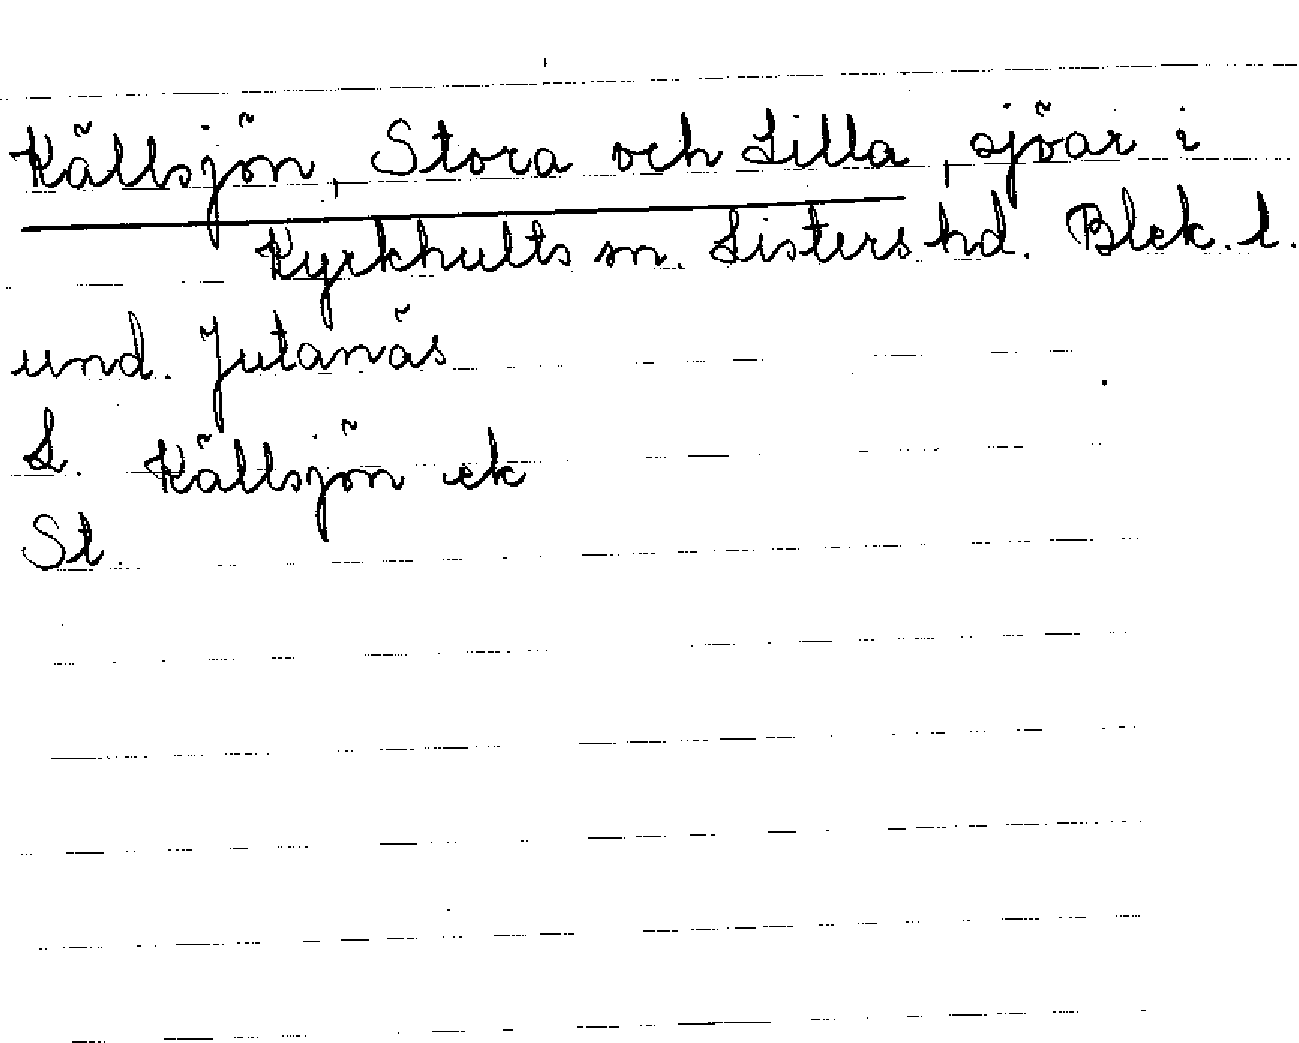 Källsjön, Stora och Lilla, sjöar i
Kyrkhults sn. Listers hd. Blek. l.
und. Jutanäs
L. Källsjön ek
St.